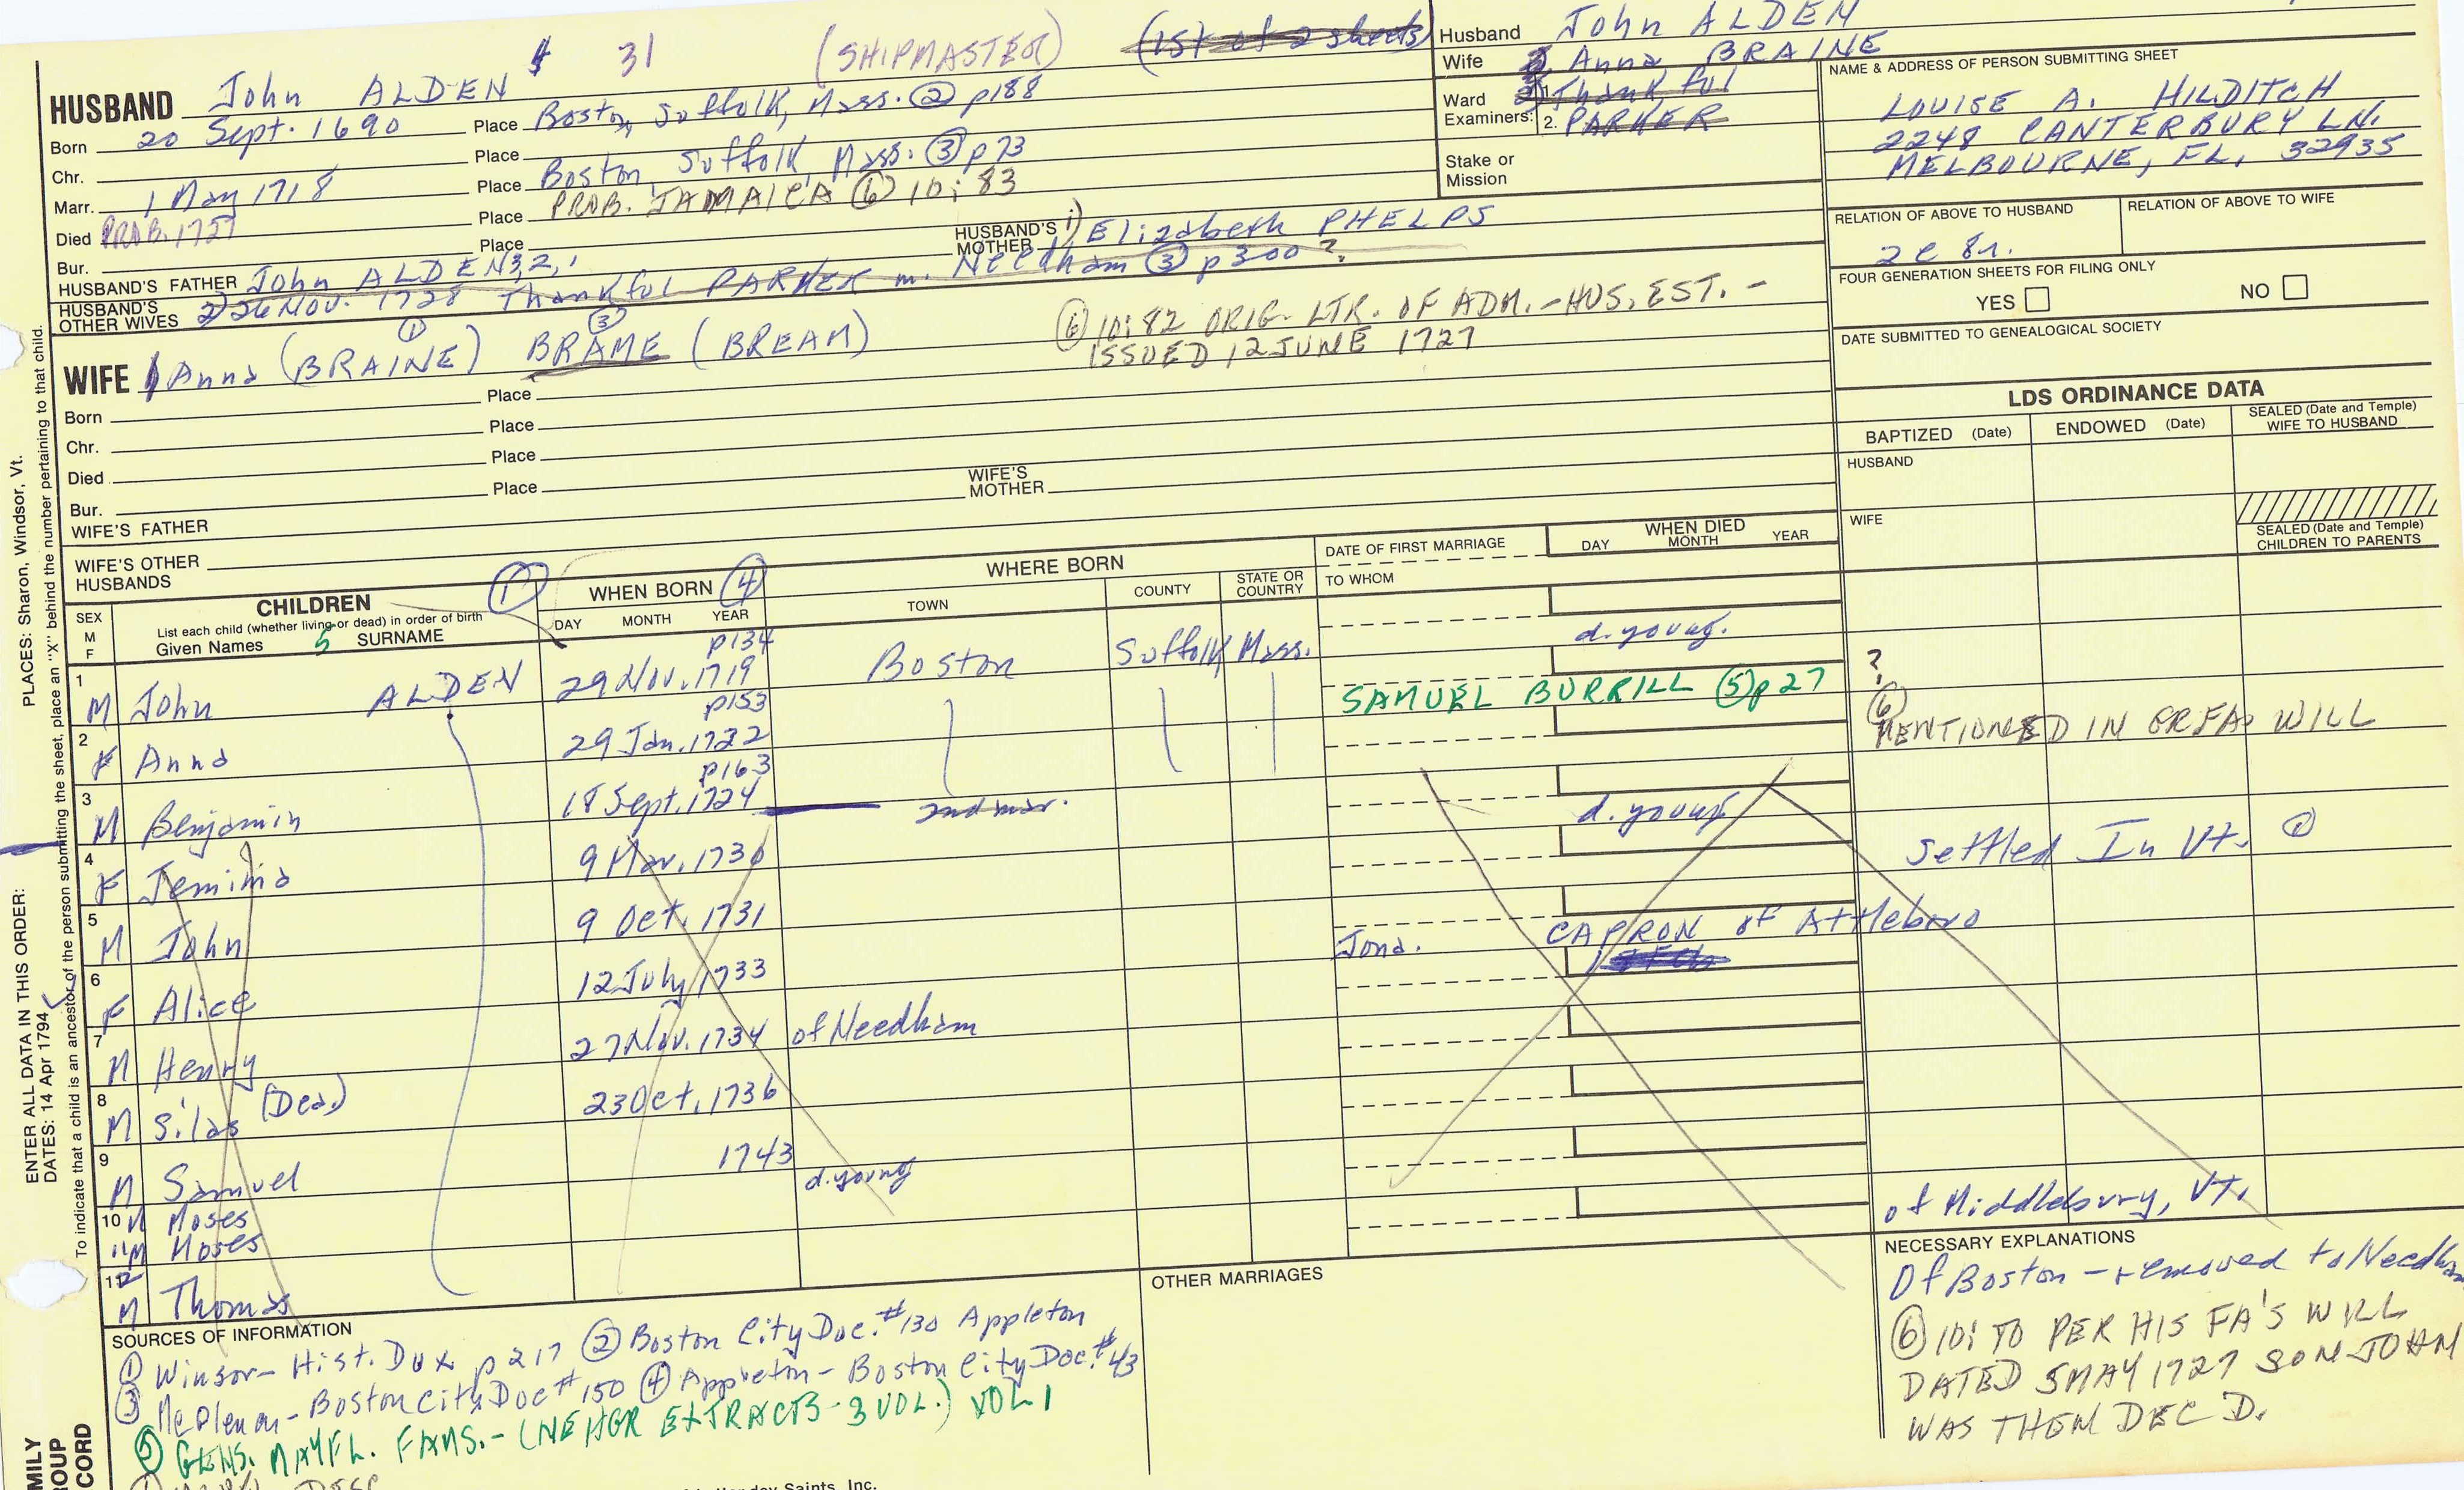 John ALDEN 31 (SHIPMASTER) (1st of 2 sheets)
HUSBAND John ALDEN
Born 20 Sept. 1690 Place Boston, Suffolk, Mass. ② p188
Chr. Place
Marr. 1 May 1718 Place Boston, Suffolk, Mass. ③ p73
Died PROB. 1727 Place PROB. JAMAICA ⑥ 10: 83
Bur. Place
HUSBAND'S FATHER John ALDEN 3,2,1 HUSBAND'S MOTHER 1) Elizabeth PHELPS
HUSBAND'S OTHER WIVES 2) 26 Nov. 1728 Thankful PARKER m. Needham ③ p300?
WIFE Anna (BRAINE) ① BRAME ③ (BREAM)
⑥ 10: 82 ORIG. LTR. OF ADM. - HUS. EST. -
ISSUED 12 JUNE 1727
Born Place
Chr. Place
Died Place
Bur. Place
WIFE'S FATHER WIFE'S MOTHER
WIFE'S OTHER HUSBANDS
Husband John ALDEN
Wife Anna BRAINE
Thankful
Ward Examiners: 1.
2. PARKER
Stake or Mission
NAME & ADDRESS OF PERSON SUBMITTING SHEET
LOUISE A. HILDITCH
2248 CANTERBURY LN.
MELBOURNE, FL. 32935
RELATION OF ABOVE TO HUSBAND RELATION OF ABOVE TO WIFE
2c 8r.
FOUR GENERATION SHEETS FOR FILING ONLY
YES NO
DATE SUBMITTED TO GENEALOGICAL SOCIETY
LDS ORDINANCE DATA
BAPTIZED (Date) ENDOWED (Date) SEALED (Date and Temple) WIFE TO HUSBAND
HUSBAND
WIFE
SEALED (Date and Temple) CHILDREN TO PARENTS
SEX M F
CHILDREN ①
List each child (whether living or dead) in order of birth
Given Names 5 SURNAME
WHEN BORN ④
DAY MONTH YEAR
WHERE BORN
TOWN COUNTY STATE OR COUNTRY
DATE OF FIRST MARRIAGE
TO WHOM
WHEN DIED
DAY MONTH YEAR
1 M John ALDEN p134 29 Nov. 1719 Boston Suffolk Mass. d. young.
2 F Anna p153 29 Jan. 1722 SAMUEL BURRILL ⑤ p27 ? ⑥ MENTIONED IN GRFA. WILL
3 M Benjamin p163 18 Sept. 1724 2nd mar.
4 F Jemima 9 Mar. 1730 d. young
5 M John 9 Oct. 1731 Settled In Vt. ①
6 F Alice 12 July 1733 Jona. CAPRON of Attleboro
7 M Henry 27 Nov. 1734 of Needham
8 M Silas (Dea.) 23 Oct. 1736
9 M Samuel 1743
10 M Moses d. young
11 M Moses of Middlebury, VT.
12 M Thomas
SOURCES OF INFORMATION
① Winsor - Hist. Dux p217 ② Boston City Doc. #130 Appleton
③ McGlenen - Boston City Doc #150 ④ Appleton - Boston City Doc. #43
⑤ GENS. MAYFL. FAMS. - (NEHGR EXTRACTS - 3 VOL.) VOL 1
OTHER MARRIAGES
NECESSARY EXPLANATIONS
Of Boston - removed to Needham
⑥ 10: 70 PER HIS FA'S WILL
DATED 5 MAY 1727 SON JOHN
WAS THEN DEC'D.
PLACES: Sharon, Windsor, Vt.
ENTER ALL DATA IN THIS ORDER:
DATES: 14 Apr 1794
To indicate that a child is an ancestor of the person submitting the sheet, place an "X" behind the number pertaining to that child.
Saints, Inc.